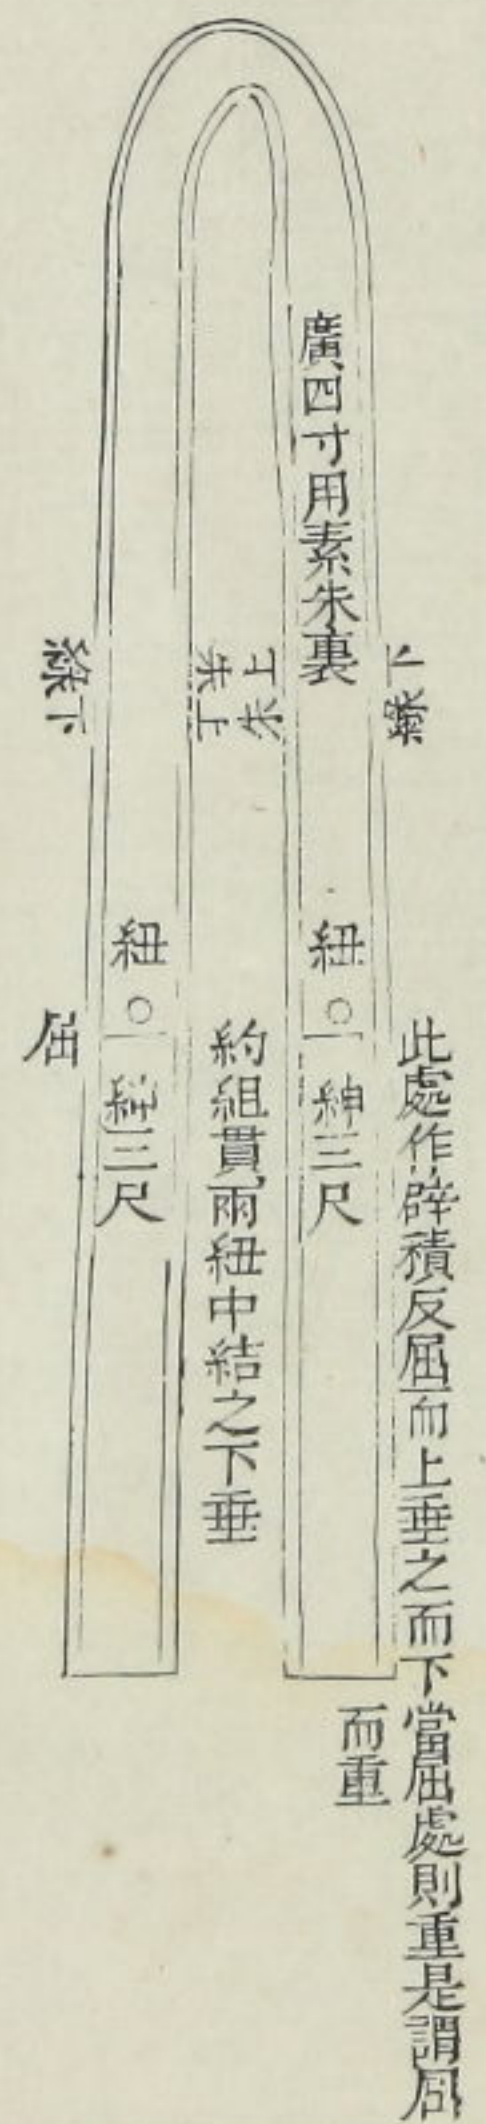 此處作辟積反屈而上垂之而下當屈處則重是謂
而重
下綠
廣四寸用素朱裏
紐
紳三尺
上朱
朱上
約組貫兩紐中結之下垂
紐
紳三尺
綠下
屈